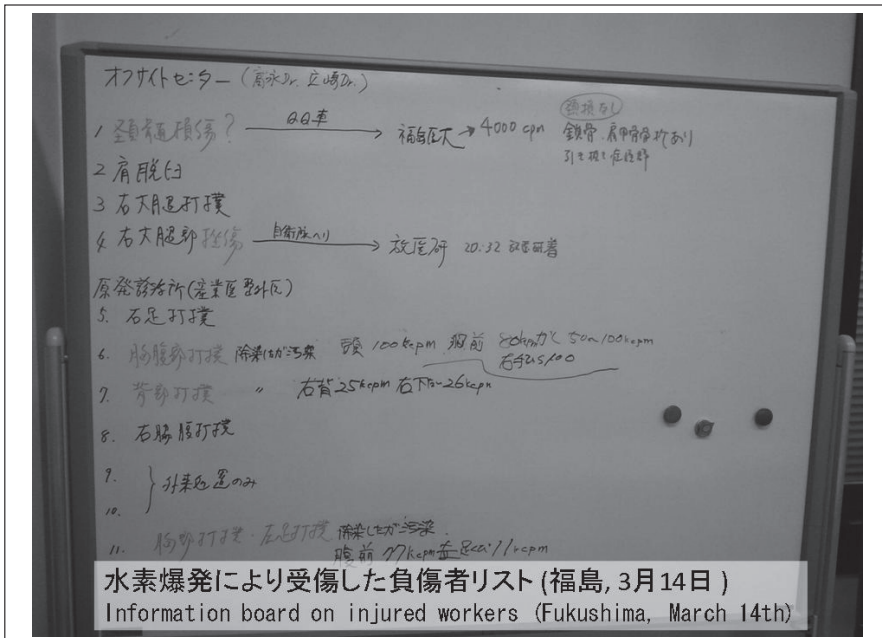 オフサイトセンター (富永Dr. 立崎Dr.)
1 頚髄損傷? QQ車 福島医大 → 4000 cpm 頚損なし
鎖骨、肩甲骨骨折あり
2 肩脱臼
3 右大腿打撲
4 右大腿部挫傷 自衛隊ヘリ 放医研 20:32 放医研着
原発診療所(産業医 郡外医)
5. 右足打撲
6. 胸腹部打撲 除染したが汚染 頭 100kcpm 胸前 50~100kcpm
7. 背部打撲 〃 右背25kcpm 26kcpm
8. 右腸腰打撲
9. 外来処置のみ
10.
11. 胸部打撲・左足打撲 除染したが汚染
腹前 77kcpm 11kcpm
水素爆発により受傷した負傷者リスト (福島, 3月14日 )
Information board on injured workers (Fukushima, March 14th)